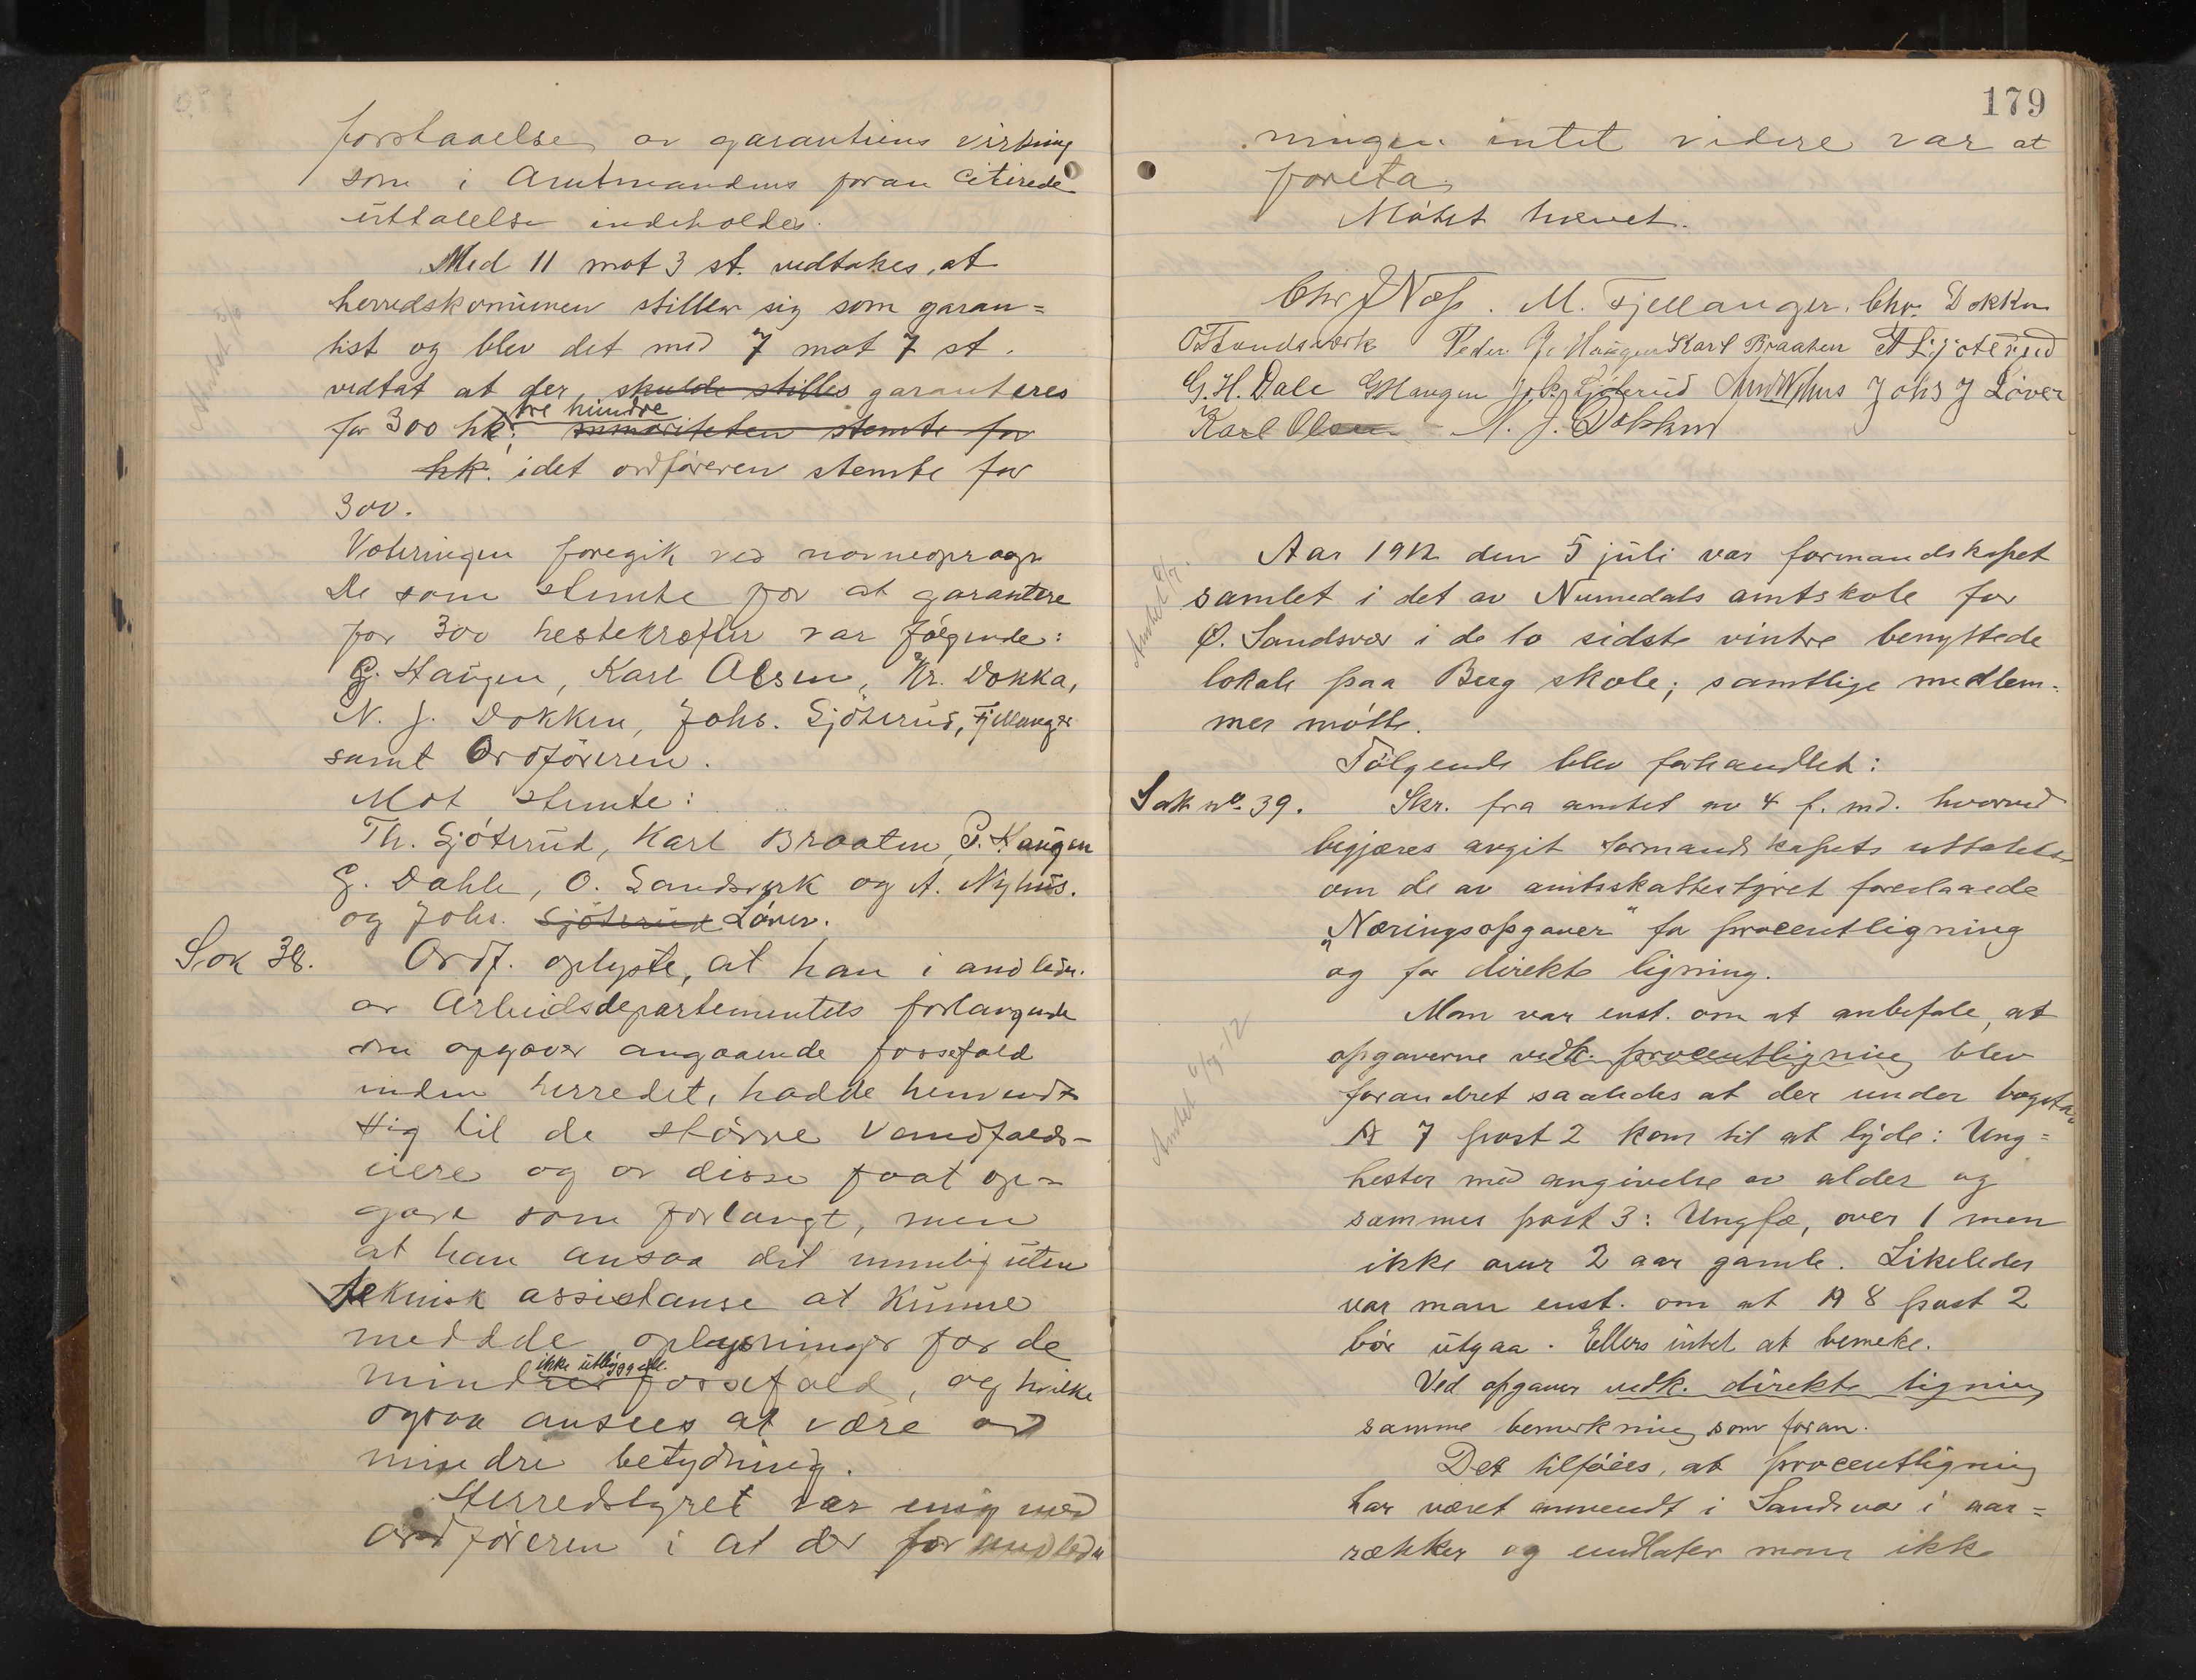 forstaaelse av garantiens virkning
som i Amtmandens foran citirede
uttalelse indeholdes.
Med 11 mot 3 st. vedtakes, at
herredskomunen stiller sig som garan=
tist og blev det med 7 mot 7 st.
vedtat at der skulde stilles garanteres
tre hundre
for 300 hk; minoriteten stemte for
hk. idet ordføreren stemte for
300.
Voteringen foregik ved navneoprop
De som stemte for at garantere
for 300 hestekræfter var følgende:
G. Haugen, Karl Olsen, Kr. Dokka,
N. J. Dokken, Johs. Sjøterud, Fjellanger
samt Ordføreren.
Mot stemte:
Th. Sjøterud, Karl Braaten, P. Haugen
G. Dahle, O. Sandsværk og A. Nyhus.
og Johs. Sjøterud Løver.
Sak 38.
Ordf. oplyste, at han i anledn.
av Arbeidsdepartementets forlangende
om opgaver angaaende fossefald
inden herredet, hadde henvendt
sig til de større vandfalds-
eiere og av disse faat op-
gave som forlangt, men
at han ansaa det umulig uten
teknisk assistanse at kunne
meddele oplysninger for de
ikke utbyggede
mindre fossefald, og hvilke
ogsaa ansees at være av
mindre betydning.
Herredstyret var enig med
ordføreren i at der for anledn
179
ningen intet videre var at
foreta.
Møtet hævet.
Chr J Næss. M. Fjellanger. Chr. Dokka
O Sandsværk Peder G. Haugen Karl Braaten Th Sjøterud
G. H. Dale G Haugen Johs Sjøterud And Nyhus Johs J Løver
Karl Olsen N. J. Dokken
Aar 1912 den 5 juli var formandskapet
samlet i det av Numedals amtskole for
Ø. Sandsvær i de to sidste vintre benyttede
lokale paa Berg skole; samtlige medlem=
mer møtte.
Følgende blev forhandlet:
Sak no. 39.
Skr. fra amtet av 4 f. md. hvorved
begjæres avgit formandskapets uttalelse
om de av amtsskattestyret foreslaaede
"Næringsopgaver" for procentligning
og for direkte ligning.
Amtet 6/7-12
Man var enst. om at anbefale, at
opgaverne vedk. procentligning blev
forandret saaledes at der under bogstav
A 7 post 2 kom til at lyde: Ung=
hester med angivelse av alder og
sammes post 3: Ungfæ, over 1 men
ikke over 2 aar gamle. Likeledes
var man enst. om at A 8 post 2
bør utgaa. Ellers intet at bemerke.
Ved opgaver vedk. direkte ligning
samme bemerkning som foran.
Det tilføies, at procentligning
har været anvendt i Sandsvær i aar=
rækker og undlater man ikke